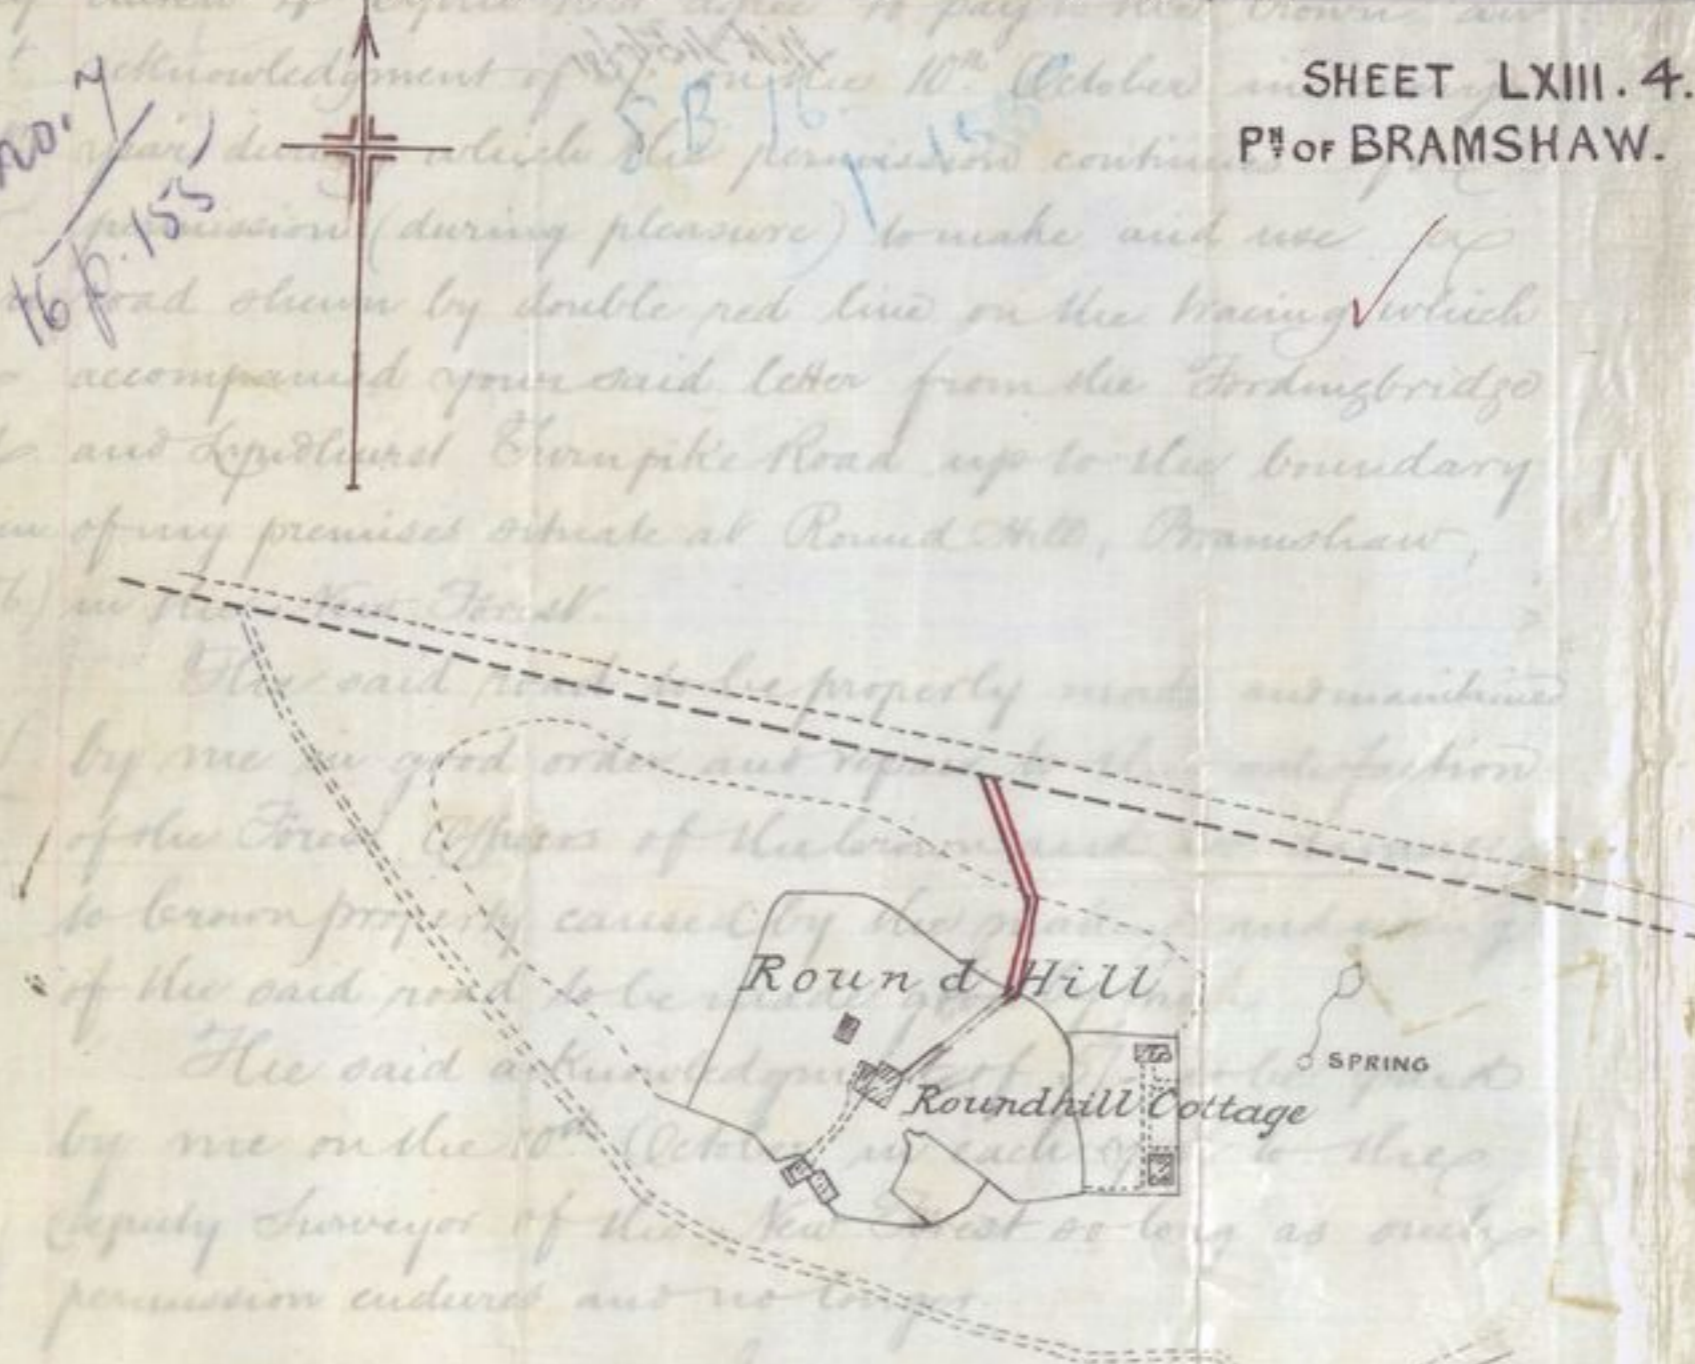 SHEET LXIII. 4.
Pᴺ OF BRAMSHAW.
no. 7
16 p. 155
S B 16
acknowledgment of on the 10th October in
which the permission
permission (during pleasure) to make and use
road shewn by double red line on the tracing which
accompanied your said letter from the Fordingbridge
and Lyndhurst Turnpike Road up to the boundary
of my premises situate at Round Hill, Bramshaw,
in the New Forest.
The said road to be properly made and maintained
by me in good order and repair to the satisfaction
of the Forest Officers of the Crown and
to Crown property caused by the making and using
of the said road to be made good
The said acknowledgment of to be paid
by me on the 10th October in each year to the
Deputy Surveyor of the New Forest so long as such
permission endures and no longer.
Round Hill
SPRING
Roundhill Cottage